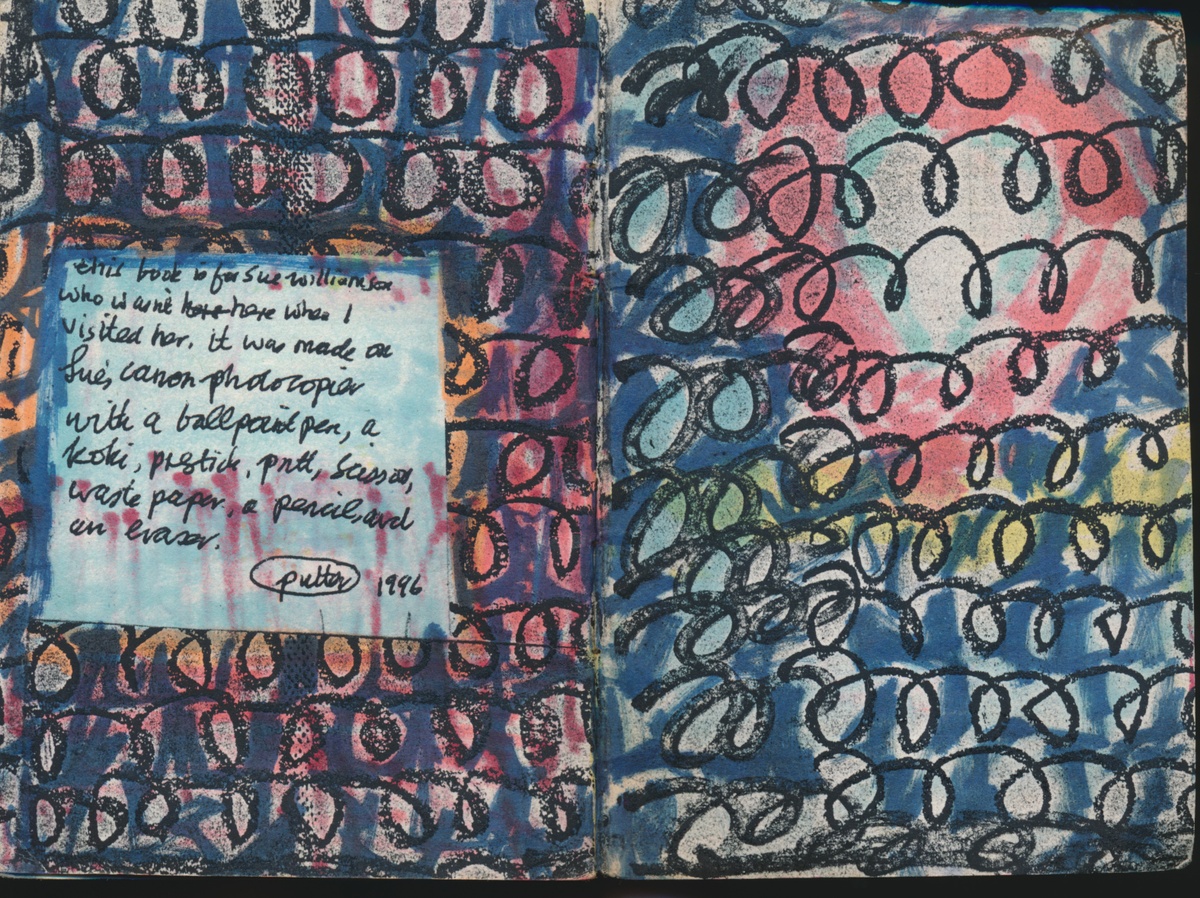 this book is for Sue Williamson
who wasn't here when I
visited her. it was made on
Sue's canon photocopier
with a ballpoint pen, a
koki, prestick, pritt, scissors,
waste paper, a pencil, and
an eraser.
putter 1996